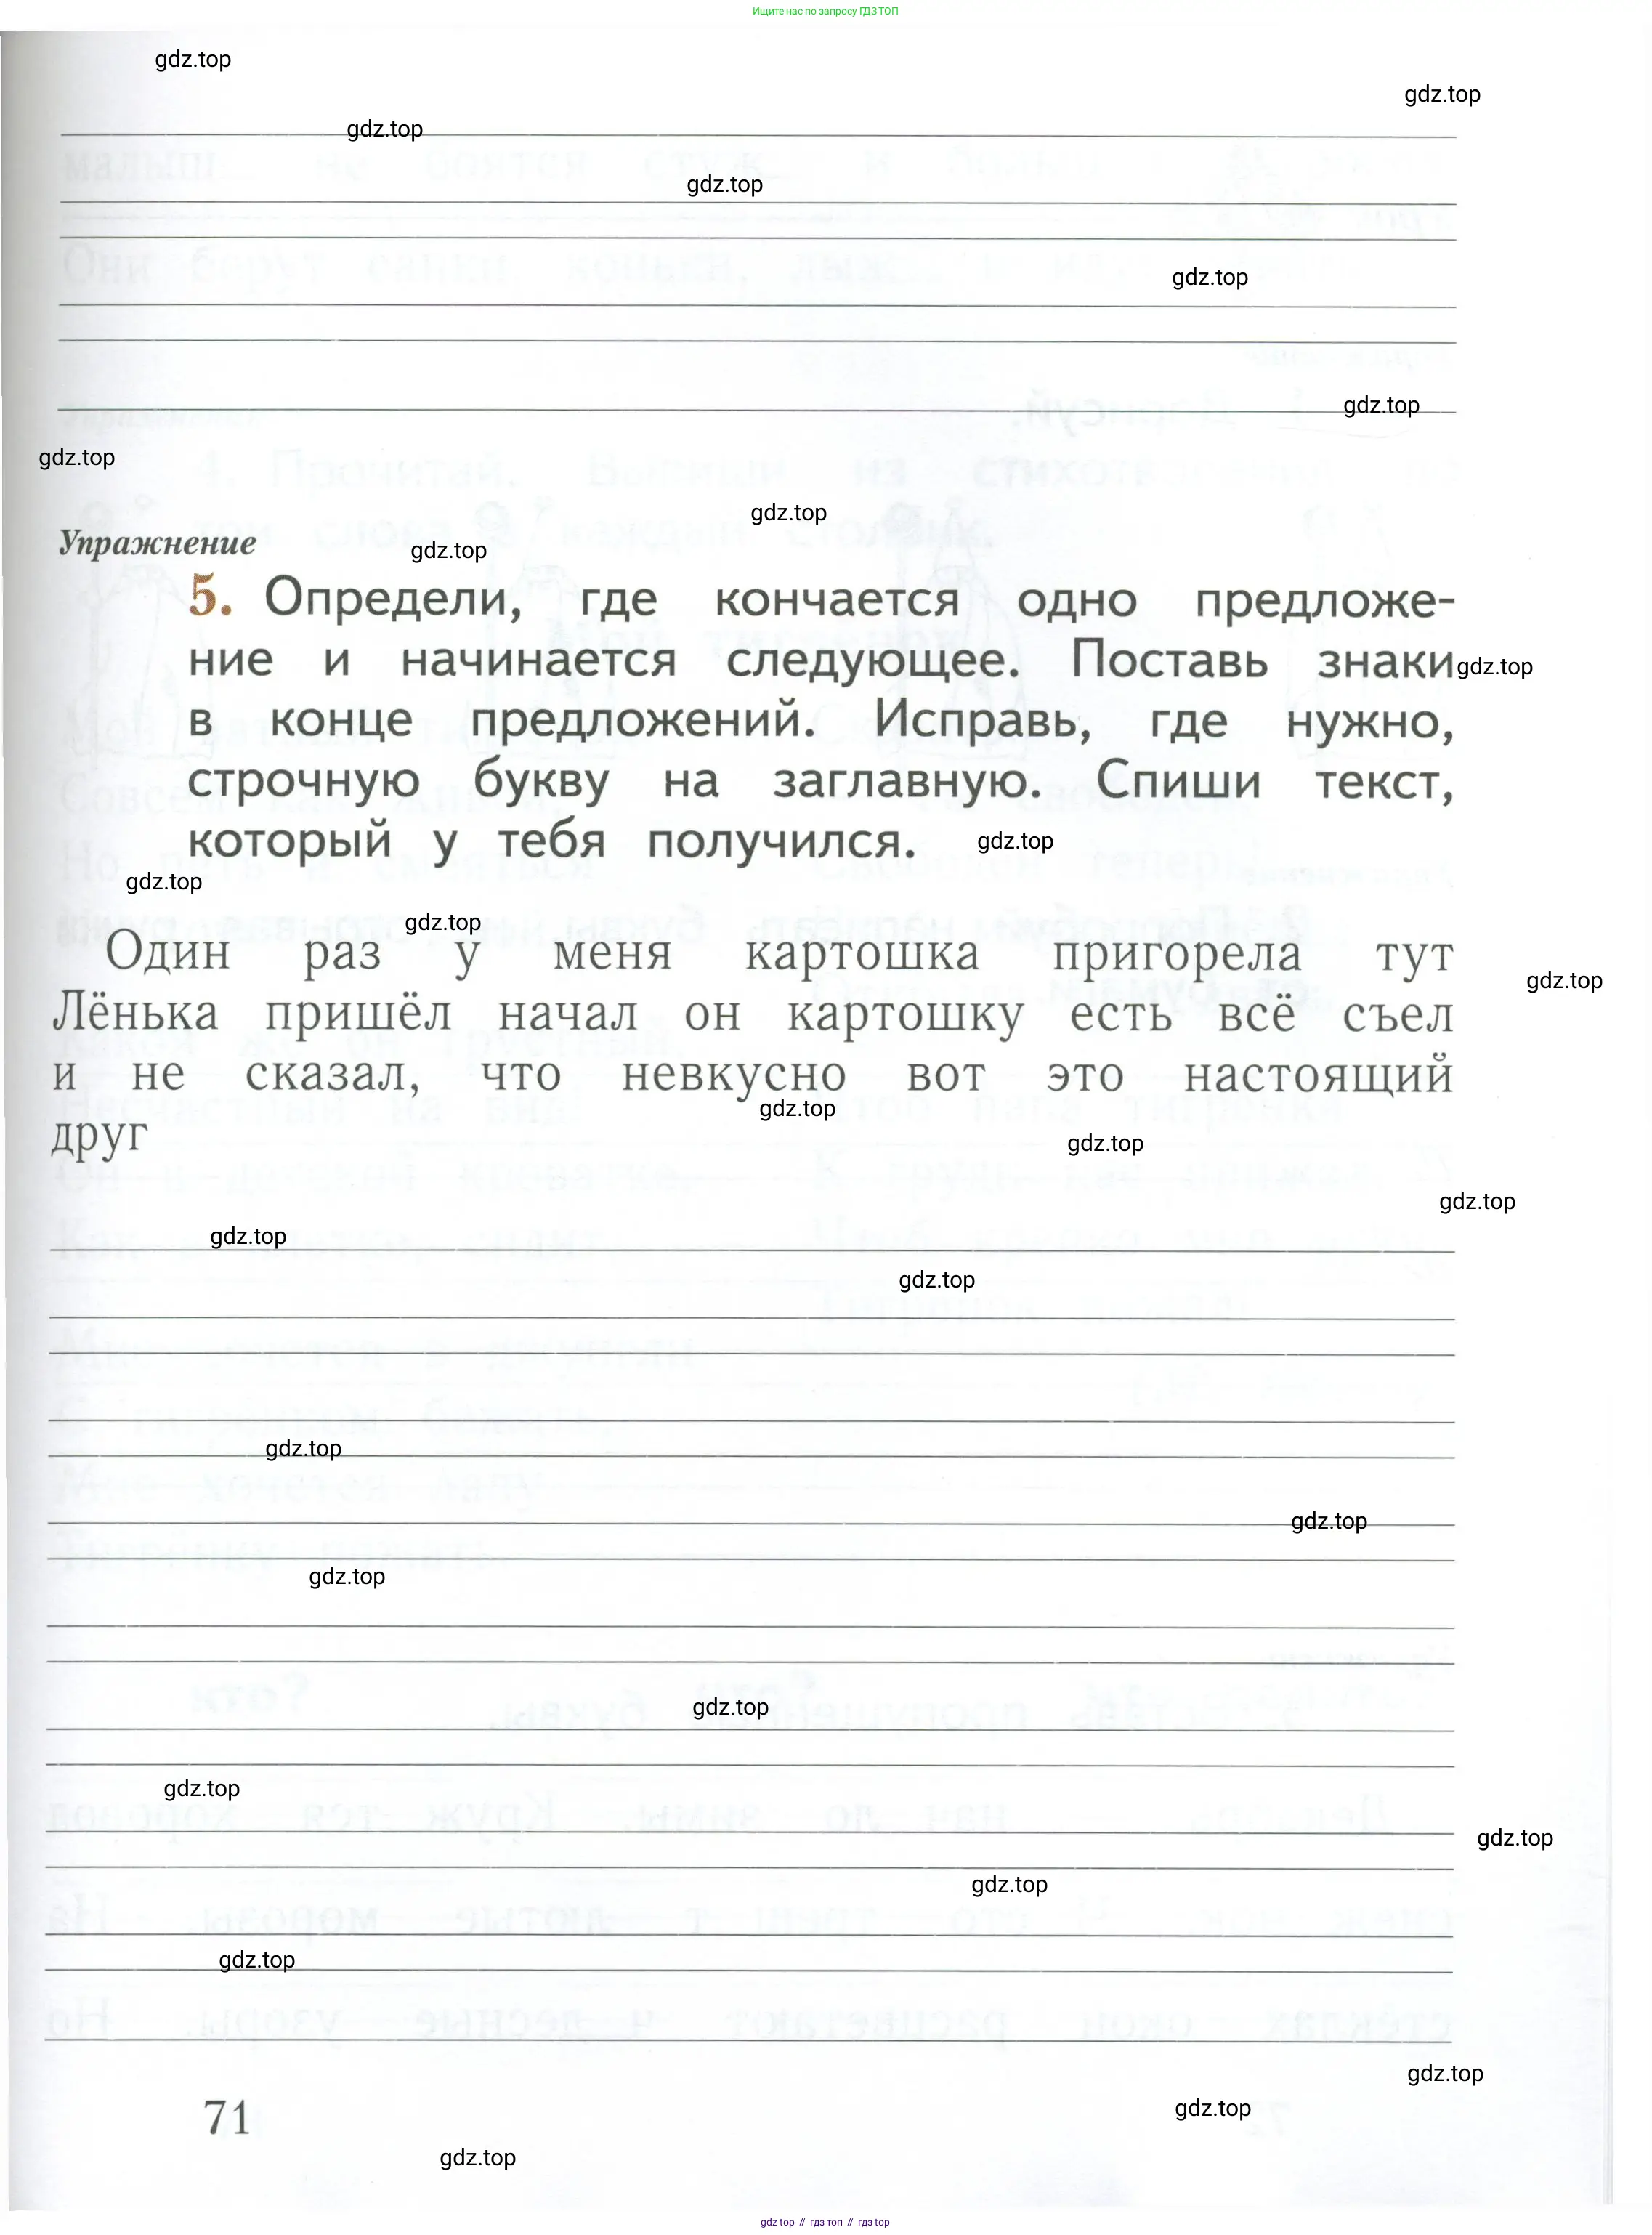 Ищите нас по запросу ГДЗ ТОП
gdz.top
gdz.top
gdz.top
gdz.top
gdz.top
gdz.top
gdz.top
gdz.top
Упражнение
gdz.top
5. Определи, где кончается одно предложе-
ние и начинается следующее. Поставь знаки
gdz.top
в конце предложений. Исправь, где нужно,
строчную букву на заглавную. Спиши текст,
который у тебя получился.
gdz.top
gdz.top
gdz.top
Один раз у меня картошка пригорела тут
gdz.top
Лёнька пришёл начал он картошку есть всё съел
и не сказал, что невкусно вот это настоящий
gdz.top
друг
gdz.top
gdz.top
gdz.top
gdz.top
gdz.top
gdz.top
gdz.top
gdz.top
gdz.top
gdz.top
gdz.top
gdz.top
gdz.top
gdz.top
71
gdz.top
gdz.top // гдз топ // гдз.top